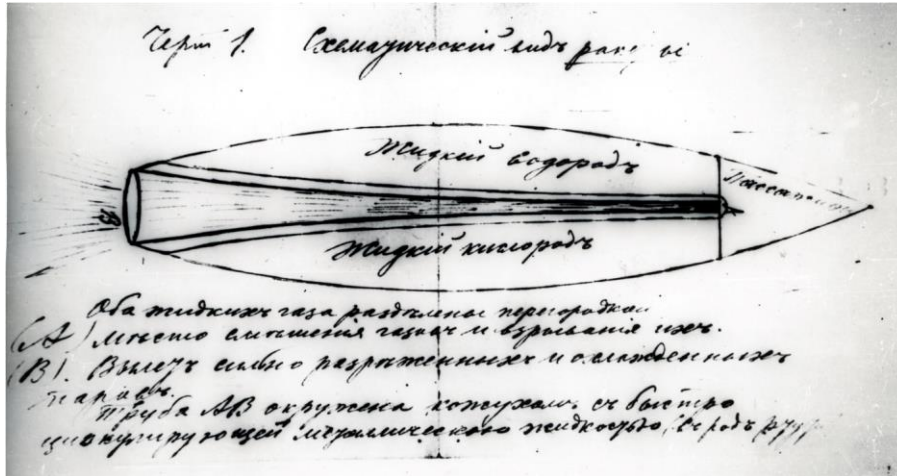 Черт 1. Схематическій видъ ракеты
Жидкій водородъ
Пассажиры
В
Жидкій кислородъ
Оба жидкихъ газа раздѣлены перегородкой
(А) мѣсто смѣшенія газовъ и взрыванія ихъ.
(В). Вылетъ сильно разрѣженныхъ и охлажденныхъ
паровъ.
Труба АВ окружена кожухомъ съ быстро
циркулирующей металлического жидкостью